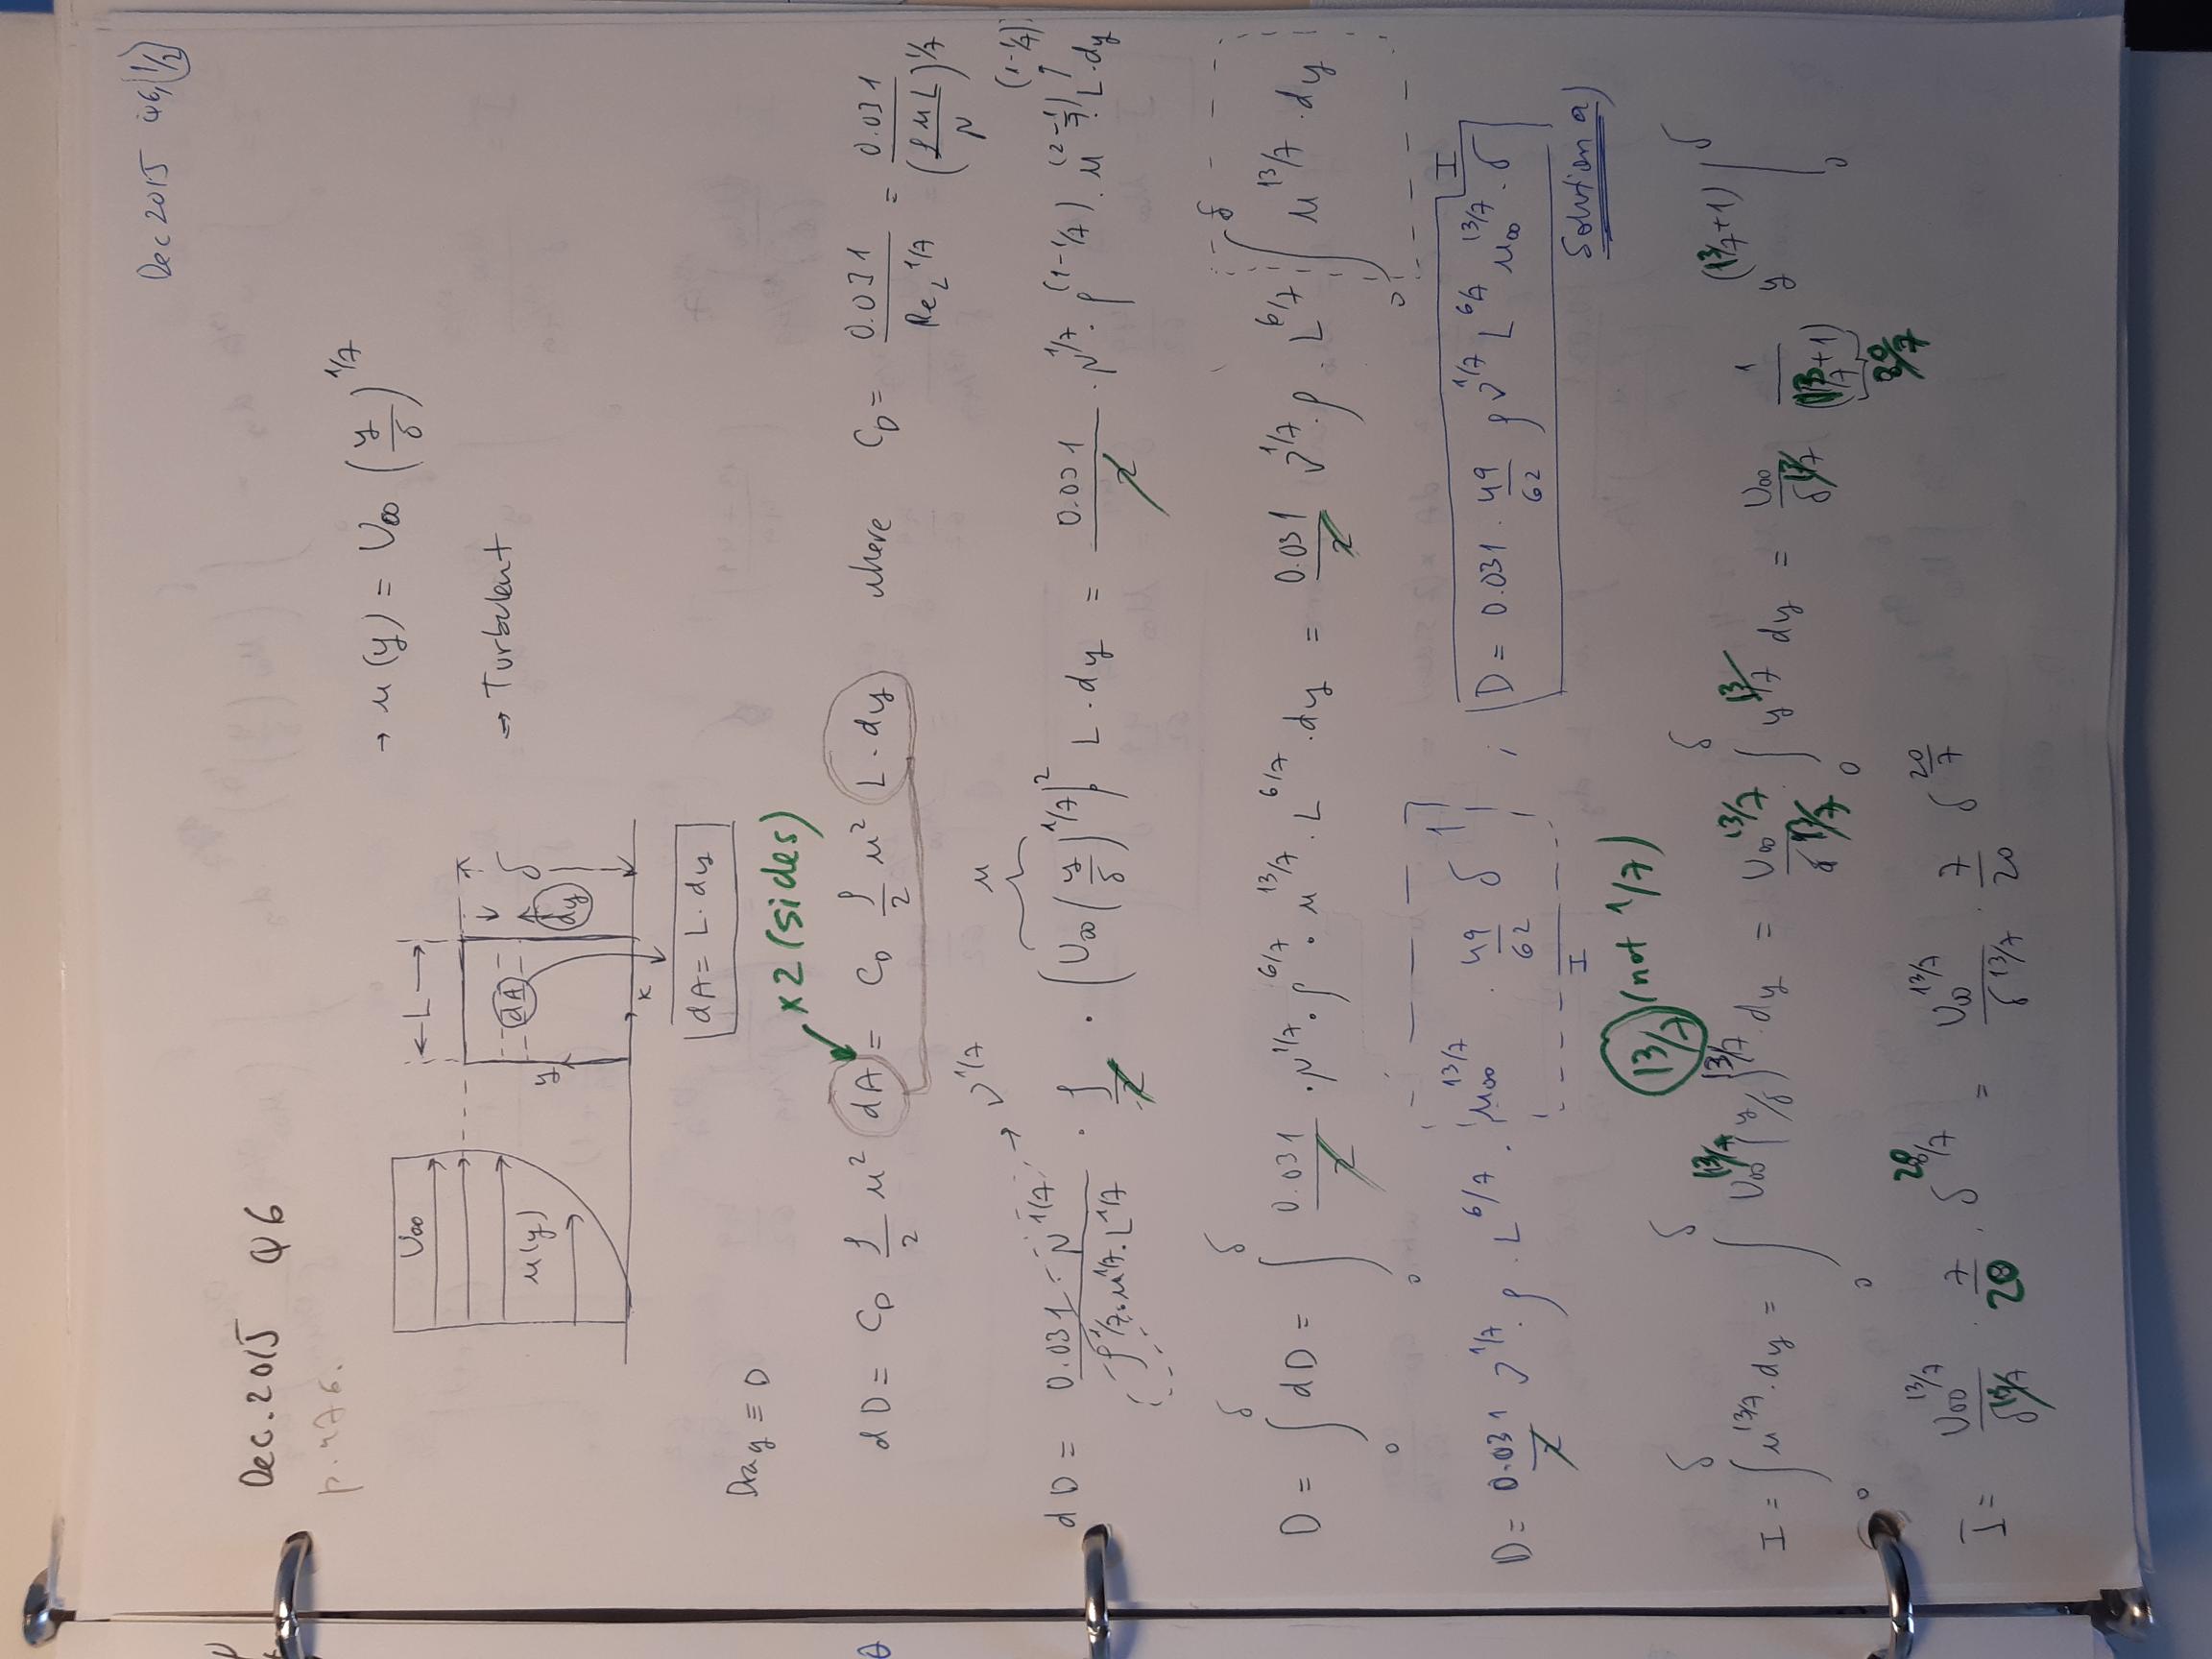 Dec 2015 Q6, (1/2)
Dec. 2015 Q6
p. 476.
→ u(y) = U∞ (y/δ)^1/7
→ Turbulent
U∞
u(y)
L
dA
y
x
dy
δ
dA = L · dy
Drag ≡ D
×2 (sides)
dD = C_D ρ/2 u² dA = C_D ρ/2 u² L · dy where C_D = 0.031/Re_L^1/7 = 0.031/(ρuL/μ)^1/7
ν^1/7
u
(1-1/7)
dD = 0.031 · μ^1/7 / ρ^1/7 · u^1/7 · L^1/7 · ρ/2 · (U∞ (y/δ)^1/7)² L · dy = 0.031/2 · μ^1/7 · ρ^(1-1/7) · u^(2-1/7) · L · dy
D = ∫₀^δ dD = ∫₀^δ 0.031/2 · μ^1/7 · ρ^6/7 · u^13/7 · L^6/7 · dy = 0.031/2 ν^1/7 · ρ · L^6/7 ∫₀^δ u^13/7 · dy
I
D = 0.031/2 ν^1/7 · ρ · L^6/7 · u∞^13/7 · 49/62 δ^1 ; D = 0.031 · 49/62 ρ ν^1/7 L^6/7 u∞^13/7 · δ
I
Solution a)
13/7 (not 1/7)
I = ∫₀^δ u^13/7 · dy = ∫₀^δ U∞^13/7 (y/δ)^13/7 dy = U∞^13/7 / δ^13/7 · ∫₀^δ y^13/7 dy = U∞ / δ^13/7 1/(13/7+1) y^(13/7+1) |₀^δ
20/7
I = U∞^13/7 / δ^13/7 · 7/20 · δ^20/7 = U∞^13/7 / δ^13/7 · 7/20 δ^20/7